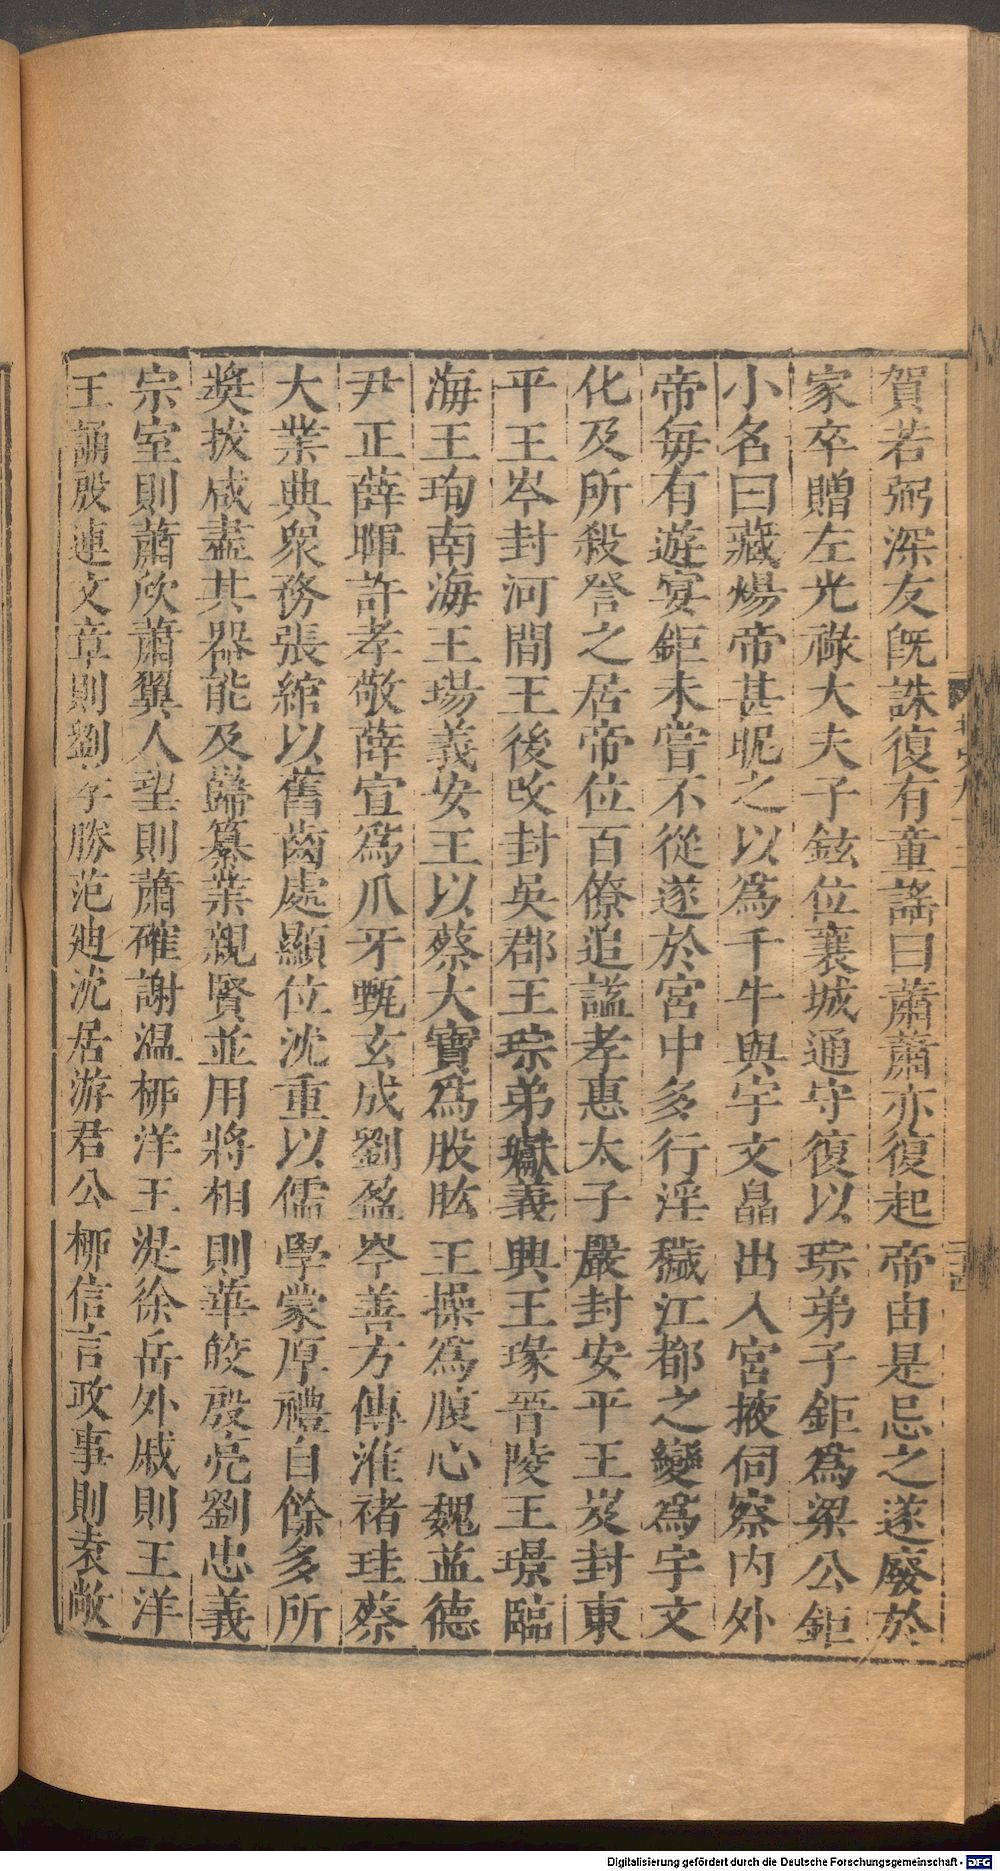 賀若弼深友旣誅復有童謠曰蕭蕭亦復起帝由是忌之遂廢於
家卒贈左光祿大夫子鉉位襄城通守復以琮弟子鉅爲梁公鉅
小名曰藏煬帝甚昵之以爲千牛與宇文皛出入宮掖伺察內外
帝每有遊宴鉅未嘗不從遂於宮中多行淫穢江都之變爲宇文
化及所殺詧之居帝位百僚追諡孝惠太子嚴封安平王岌封東
平王岑封河間王後改封吳郡王琮弟瓛義興王瑑晉陵王璟臨
海王珣南海王瑒義安王以蔡大寶爲股肱王操爲腹心魏益德
尹正薛暉許孝敬薛宣爲爪牙甄玄成劉盈岑善方傅淮褚珪蔡
大業典衆務張綰以舊齒處顯位沈重以儒學蒙厚禮自餘多所
奬拔咸盡其器能及巋纂業親賢並用將相則華皎殷亮劉忠義
宗室則蕭欣蕭翼人望則蕭確謝溫柳洋王湜徐岳外戚則王洋
王誦殷連文章則劉孝勝范迪沈居游君公柳信言政事則袁敞
Digitalisierung gefördert durch die Deutsche Forschungsgemeinschaft - DFG